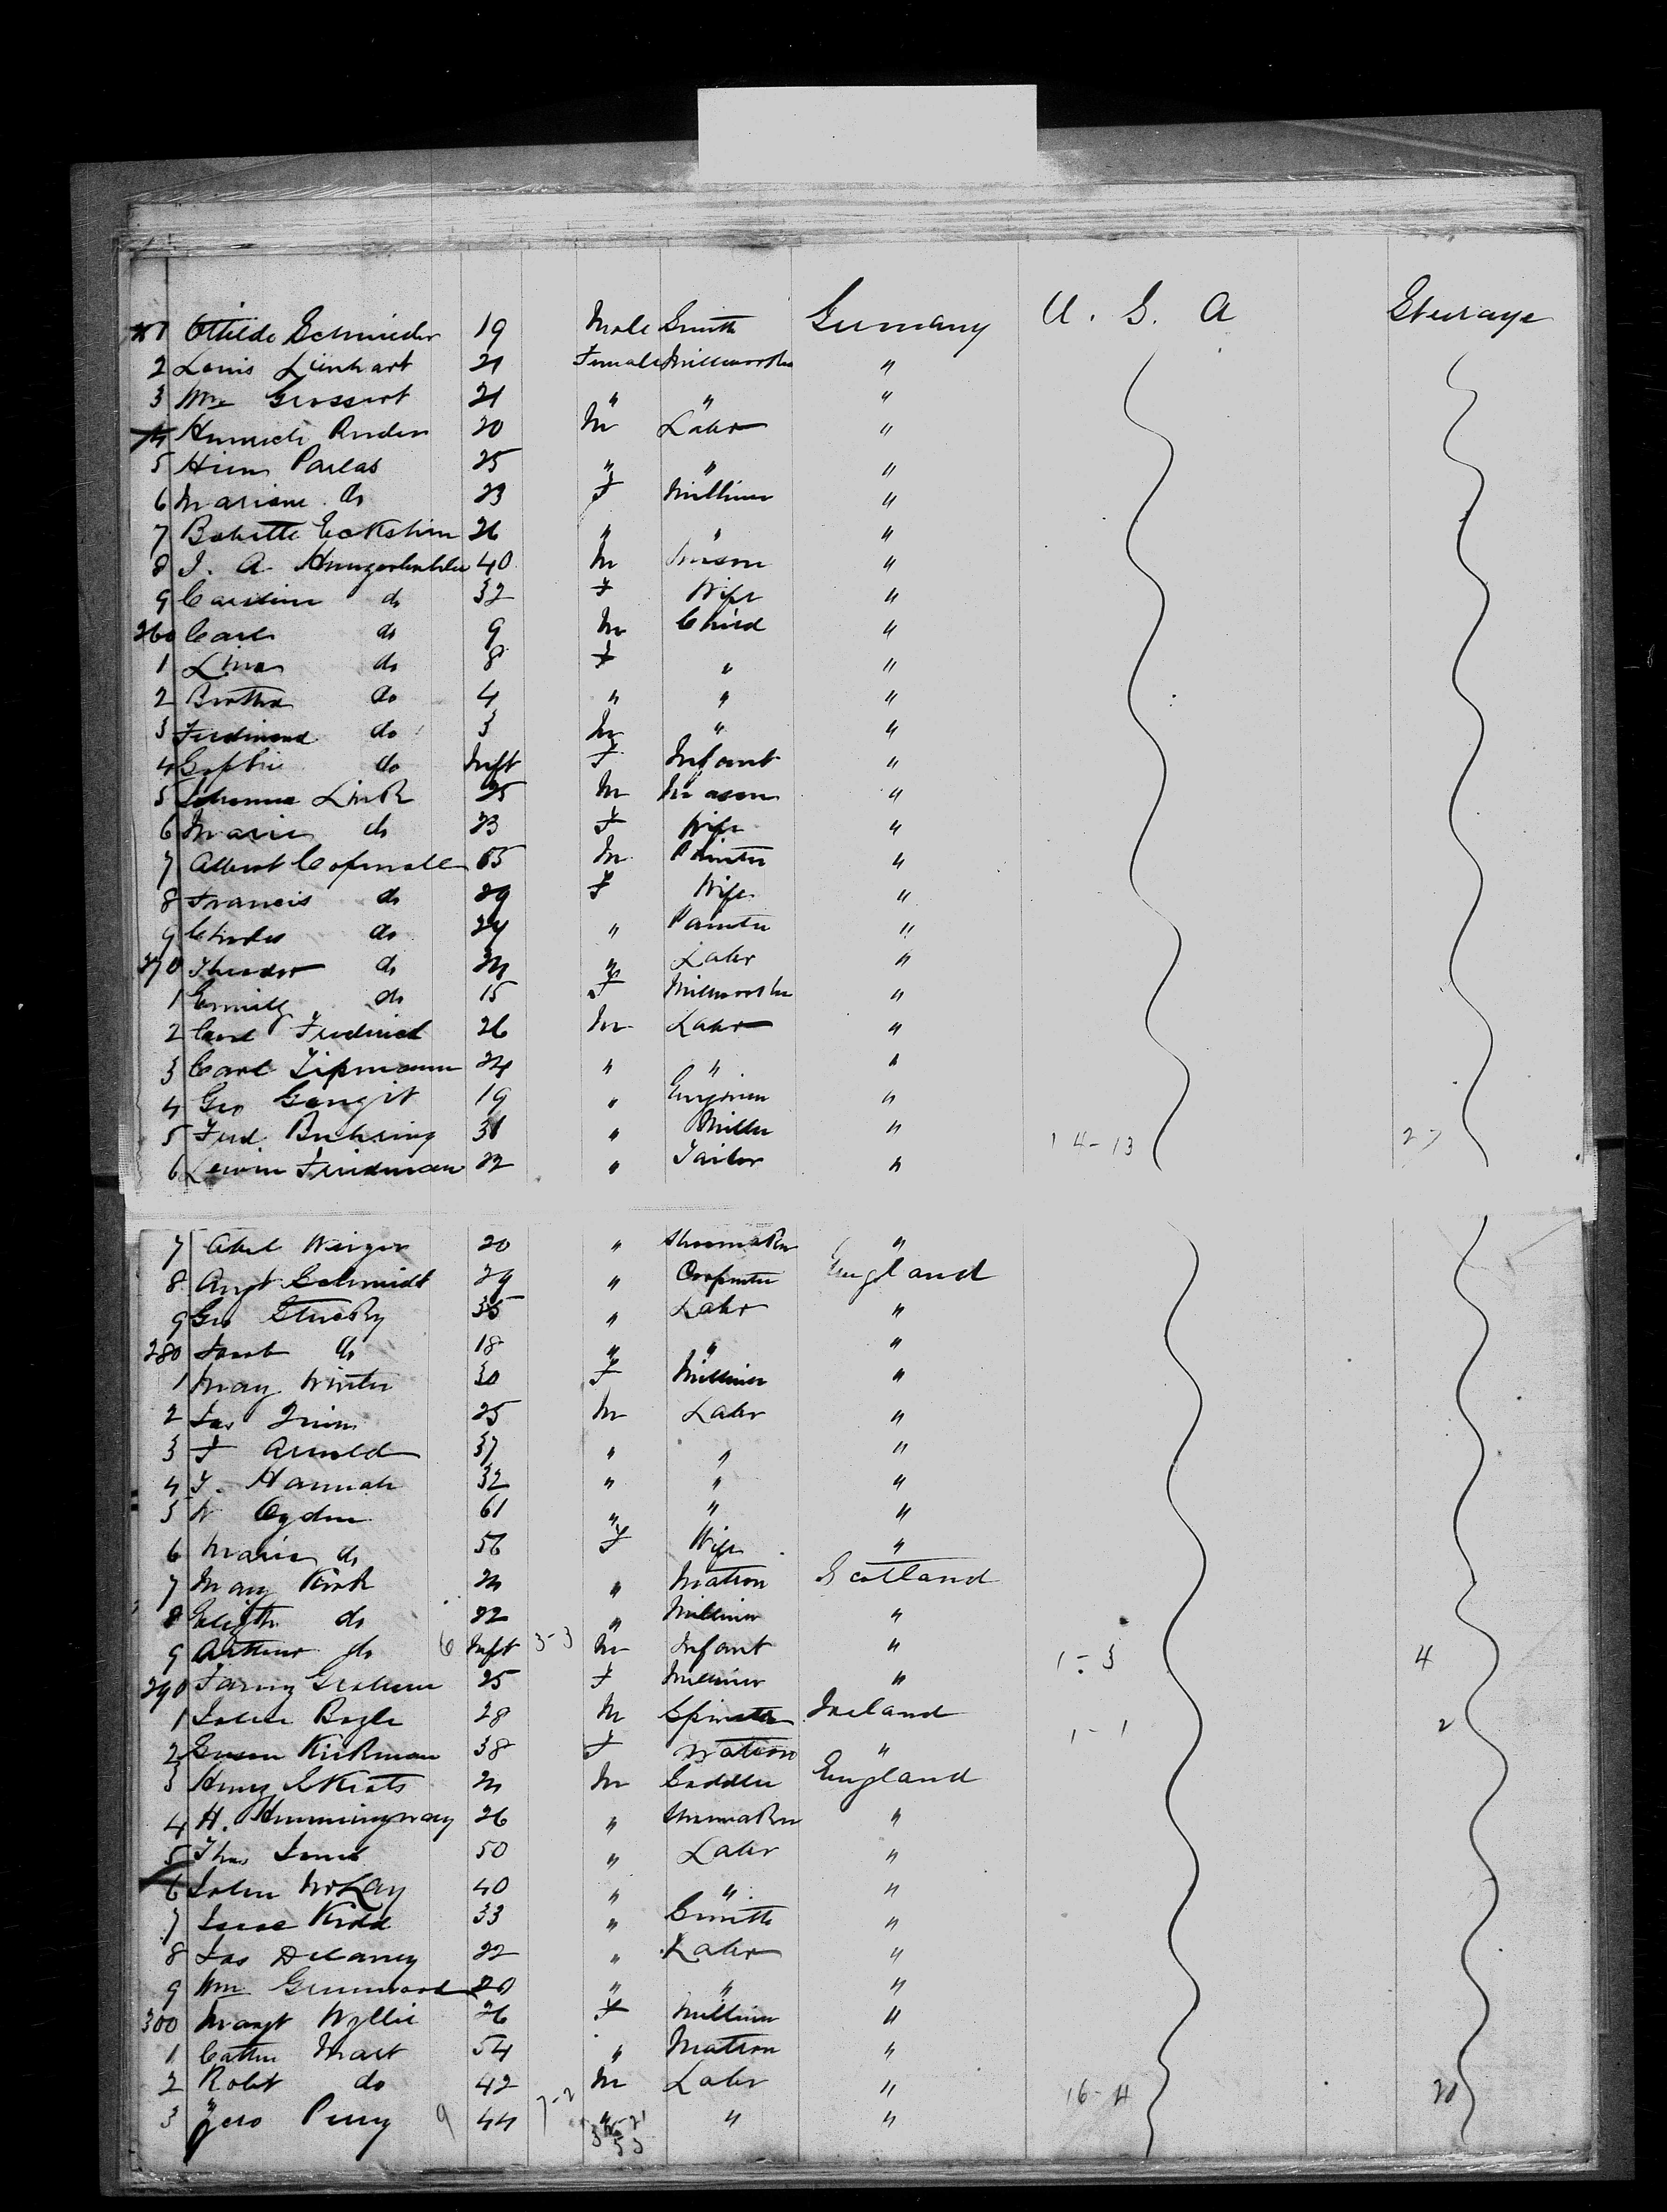 251 Ottilde Schmieder 19 Male Smith Germany U. S. A Steerage
2 Louis Linhart 21 Female Millworker "
3 Mrs Grossert 21 " " "
4 Heinrich Ruder 20 M Labr "
5 Hiem Parlas 25 " " "
6 Mariane do 23 F Milliner "
7 Babette Eckstein 26 " " "
8 J. A. Hungerbuhler 40 M Mason "
9 Caroline do 32 F Wife "
260 Carl do 9 M Child "
1 Lina do 8 F " "
2 Bertha do 4 " " "
3 Ferdinand do 3 M " "
4 Sophie do Inft F Infant "
5 Johanna Link 25 M Mason "
6 Marie do 23 F Wife "
7 Albert Copmall 55 M Painter "
8 Francis do 29 F Wife "
9 do 24 " Painter "
270 Theodor do " Labr "
1 Emily do 15 F Millworker "
2 Carl Frederick 26 M Labr "
3 Carl Lipmann 24 " " "
4 Geo Gengit 19 " Engineer "
5 Ferd. Buhring 31 " Miller " 14-13 27
6 Lewin Friedman 22 " Tailor "
7 Abel Weizer 20 " Shoemaker "
8 Augt Schmidt 29 " Carpenter England
9 Geo Stucky 35 " Labr "
280 Jacob do 18 " " "
1 Mary Winter 30 F Milliner "
2 Jas 25 M Labr "
3 F Arnold 37 " " "
4 T. Hannah 32 " " "
5 W Ogden 61 " " "
6 Maria do 56 F Wife "
7 Mary Kirk " Matron Scotland
8 Elizth do 22 " Milliner "
9 Arthur do 6 Inft 3-3 M Infant " 1-3 4
290 Fanny Graham 25 F Milliner "
1 John Boyle 28 M Spinster Ireland 1-1 2
2 Susan Kirkman 38 F Matron "
3 Henry Skeats M Saddler England
4 H. Hemmingway 26 " Shoemaker "
5 Thos Jones 50 " Labr "
6 John McLay 40 " " "
7 Isaac Kidd 33 " Smith "
8 Jas Delaney 22 " Labr "
9 Wm Greenwood 20 " " "
300 Margt Wyllie 26 F Milliner "
1 Cathn Mart 54 " Matron "
2 Robt do 42 M Labr " 16-4 20
3 Geo Perry 9 44 7-2 " " "